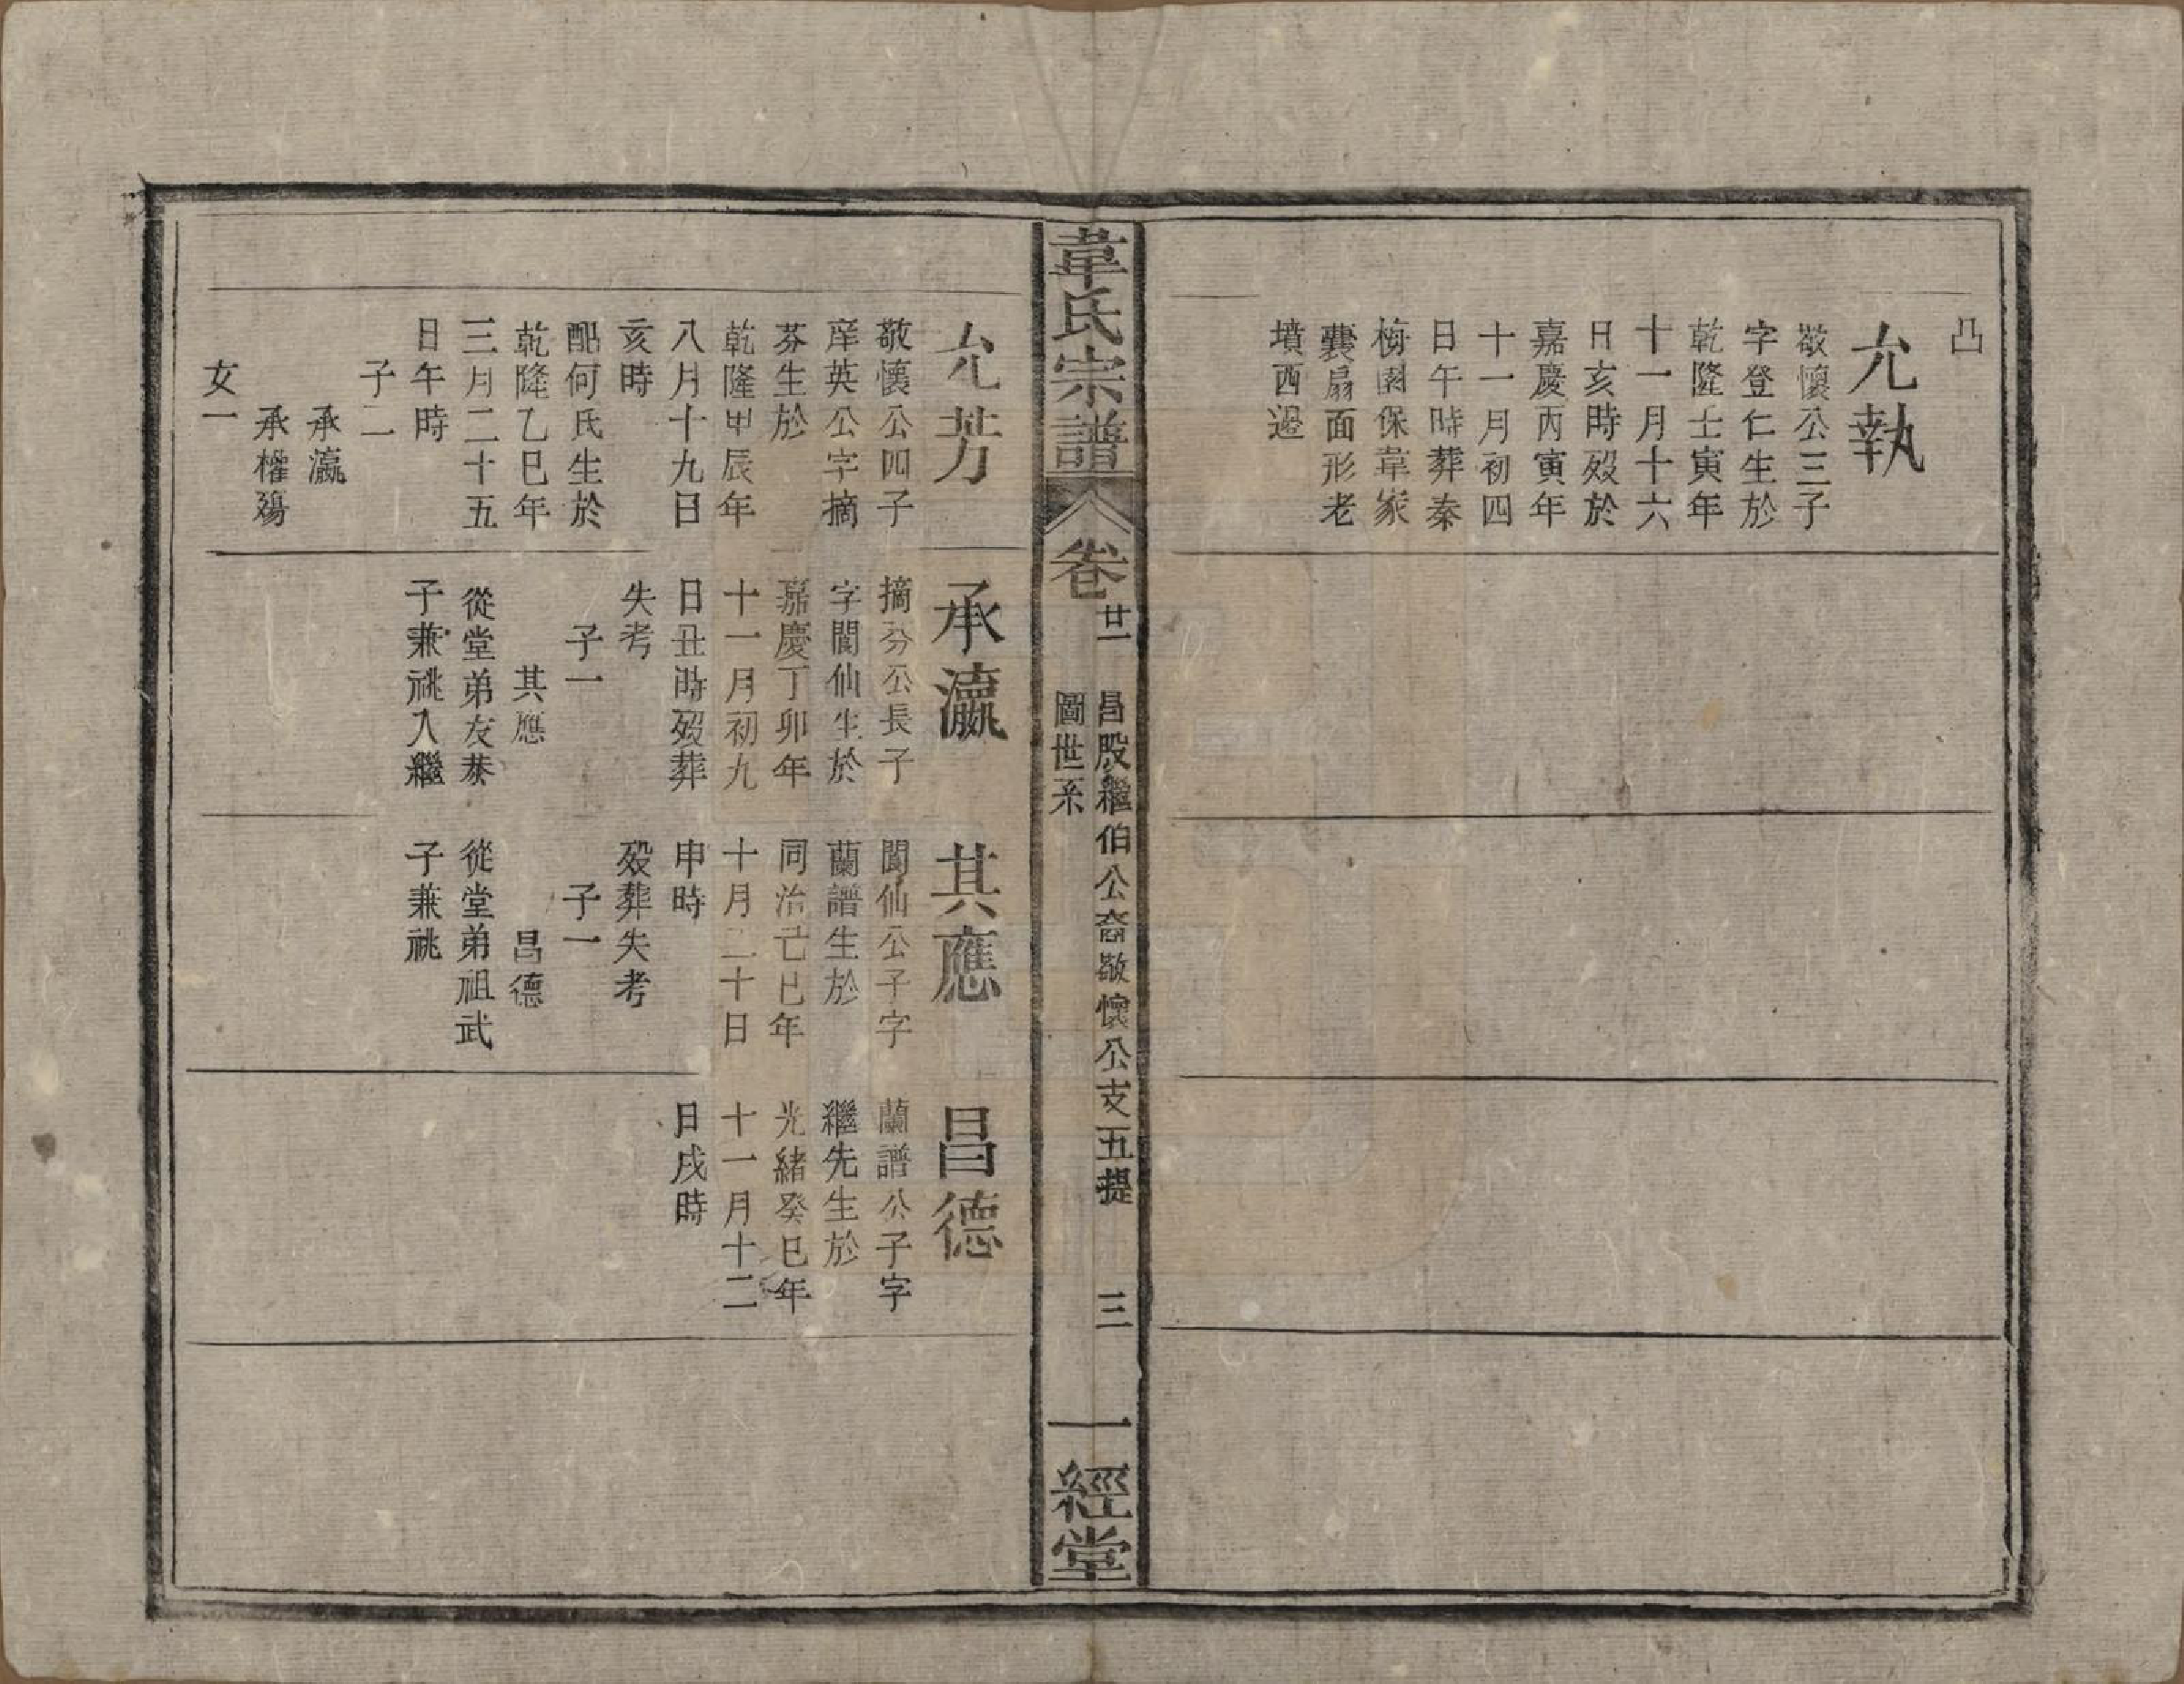 凸
允執
敬懷公三子
字登仁生於
乾隆士寅年
十一月十六
日亥時歿於
嘉慶丙寅年
十一月初四
日午時葬秦
梅園保韋家
囊扇面形老
墳西邊
韋氏宗譜
卷廿一
昌股繼伯公裔敬懷公支五提
圖世系
三
一經堂
允芳
敬懷公四子
庠英公字摘
芬生於
乾隆甲辰年
八月十九日
亥時
配何氏生於
乾隆乙巳年
三月二十五
日午時
子二
承瀛
承權殤
女一
承瀛
摘芬公長子
字閬仙生於
嘉慶丁卯年
十一月初九
日丑時歿葬
失考
子一
其應
從堂弟友棻
子兼祧入繼
其應
閬仙公子字
蘭譜生於
同治亡巳年
十月二十日
申時
歿葬失考
子一
昌德
從堂弟祖武
子兼祧
昌德
蘭譜公子字
繼先生於
光緒癸巳年
十一月十二
日戌時